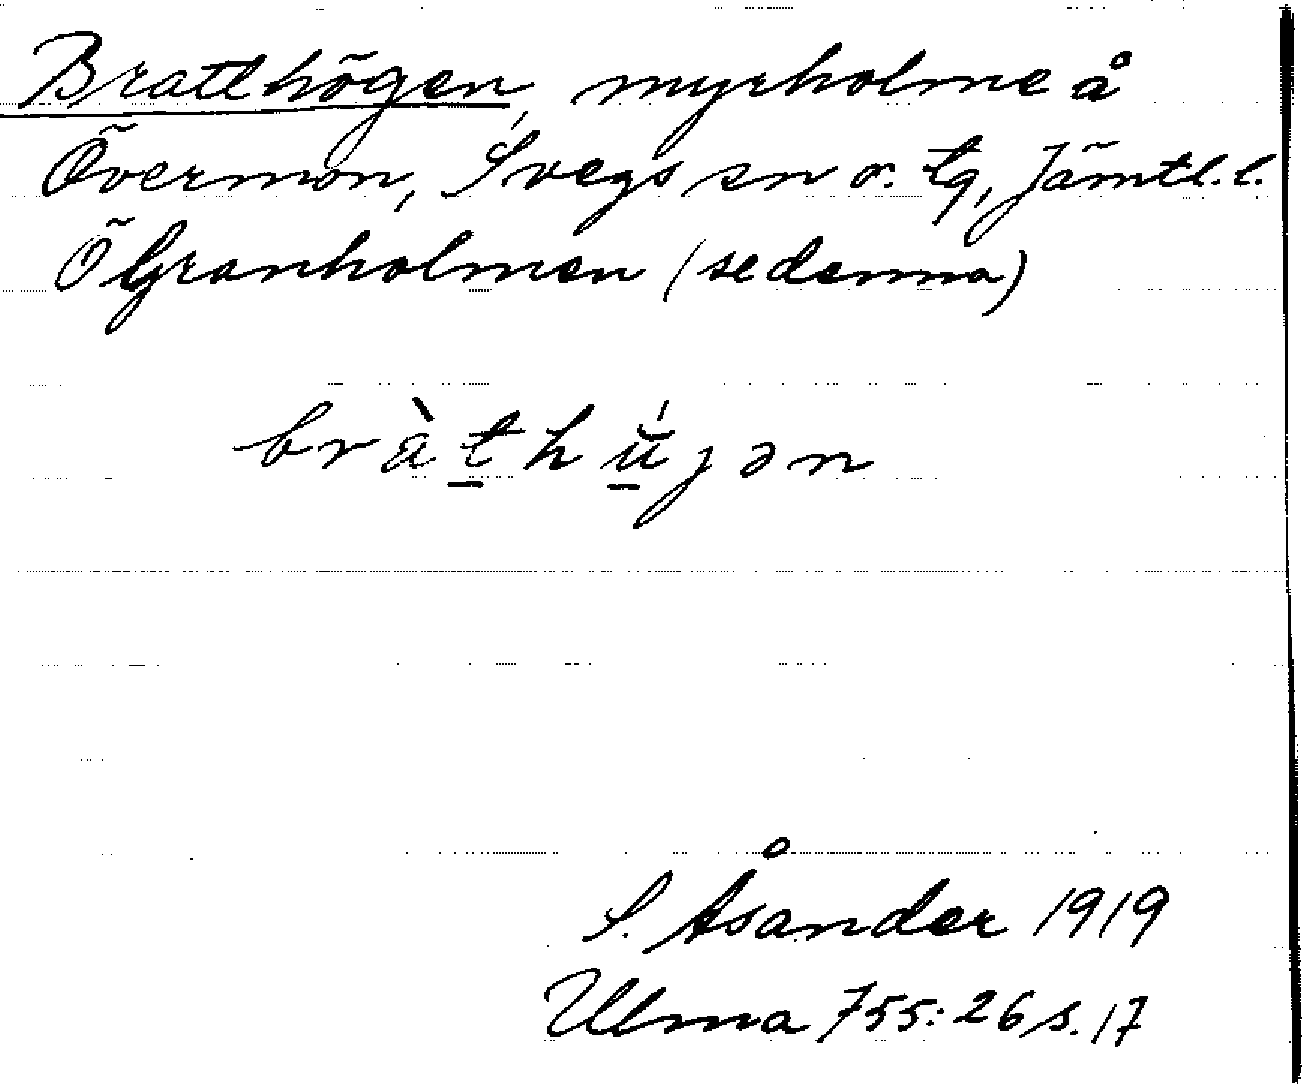 Bratthögen, myrholme å
Övermon, Svegs sn o. tg, Jämtl. l.
Ö Granholmen (se denna)
bràt̲hű̲jən
S. Åsander 1919
Ulma 755:26 s. 17